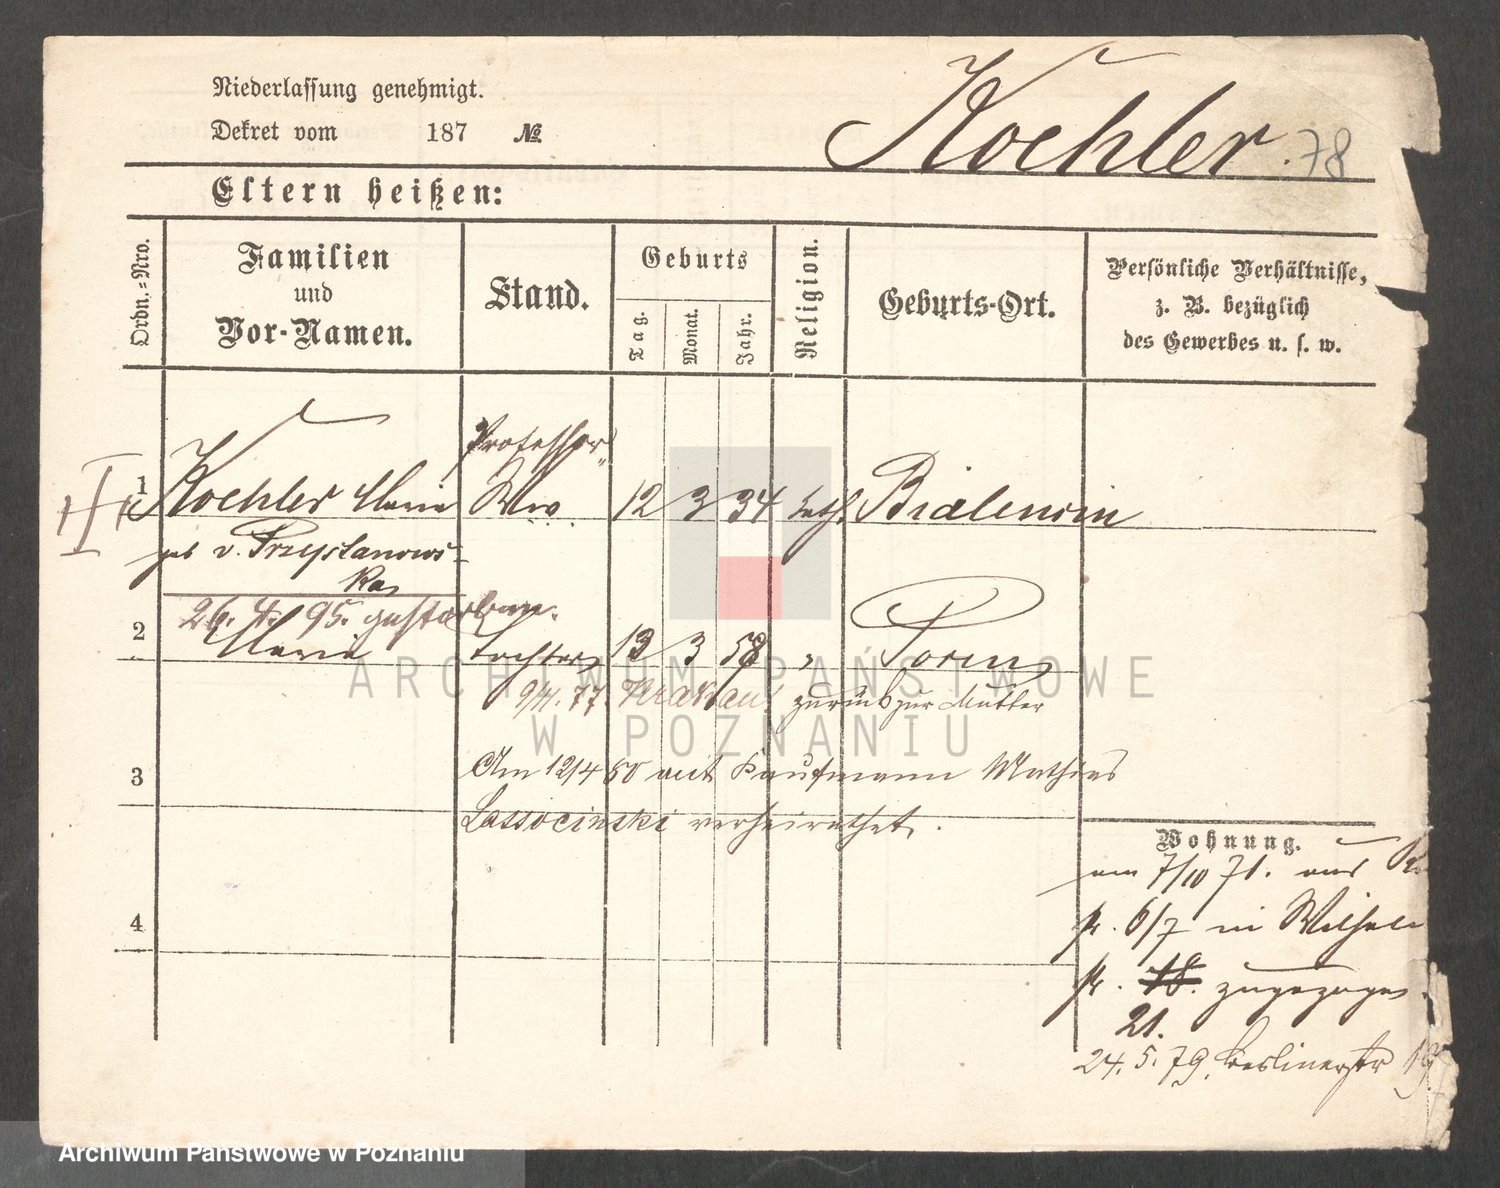 Niederlassung genehmigt.
Dekret vom 187 №
Koehler. 78
Eltern heißen:
Ordn.=Nro.
Familien
und
Vor-Namen.
Stand.
Geburts
Tag.
Monat.
Jahr.
Religion.
Geburts-Ort.
Persönliche Verhältnisse,
z. B. bezüglich
des Gewerbes u. s. w.
Professor
1 Koehler Marie Ww 12 3 34 kath.
geb v. Przystanows-
ka
26. 4. 95. gestorben.
2 Marie Tochter 13 3 58 " Posen
9/4. 77. Krakau zurück zur Mutter
3 Am 12/4 80 mit Kaufmann Mathias
Lassocinski verheirathet.
4
Wohnung.
am 7/10 71. aus
str. 6/7 in Wilhelm
str. 18. zugezogen.
21.
24. 5. 79. Berlinerstr 19
ARCHIWUM PAŃSTWOWE
W POZNANIU
Archiwum Państwowe w Poznaniu